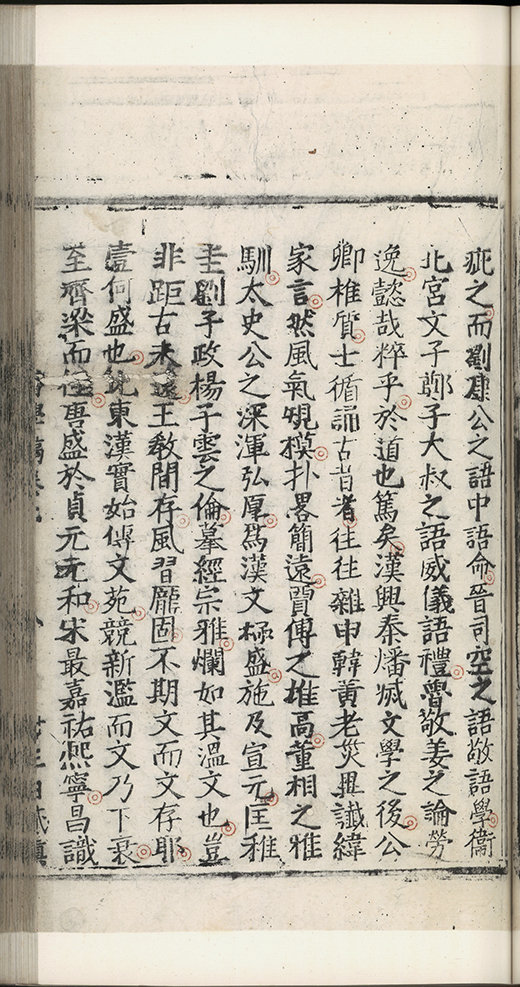 疵之而劉康公之語中語命晉司空之語敬語學衞
北宮文子鄭子大叔之語威儀語禮魯敬姜之論勞
逸懿哉粹乎於道也篤矣漢興秦燔滅文學之後公
卿椎質士循誦古昔者往往雜申韓黄老災異讖緯
家言然風氣規模扑畧簡遠賈傅之堆高董相之雅
馴太史公之深渾弘厚爲漢文極盛施及宣元匡稚
圭劉子政楊子雲之倫摹經宗雅爛如其溫文也豈
非距古未遠王敎間存風習龎固不期文而文存耶
壹何盛也統東漢實始傅文苑競新濫而文乃下衰
至齊梁而極唐盛於貞元元和宋最嘉祐熙寧昌識